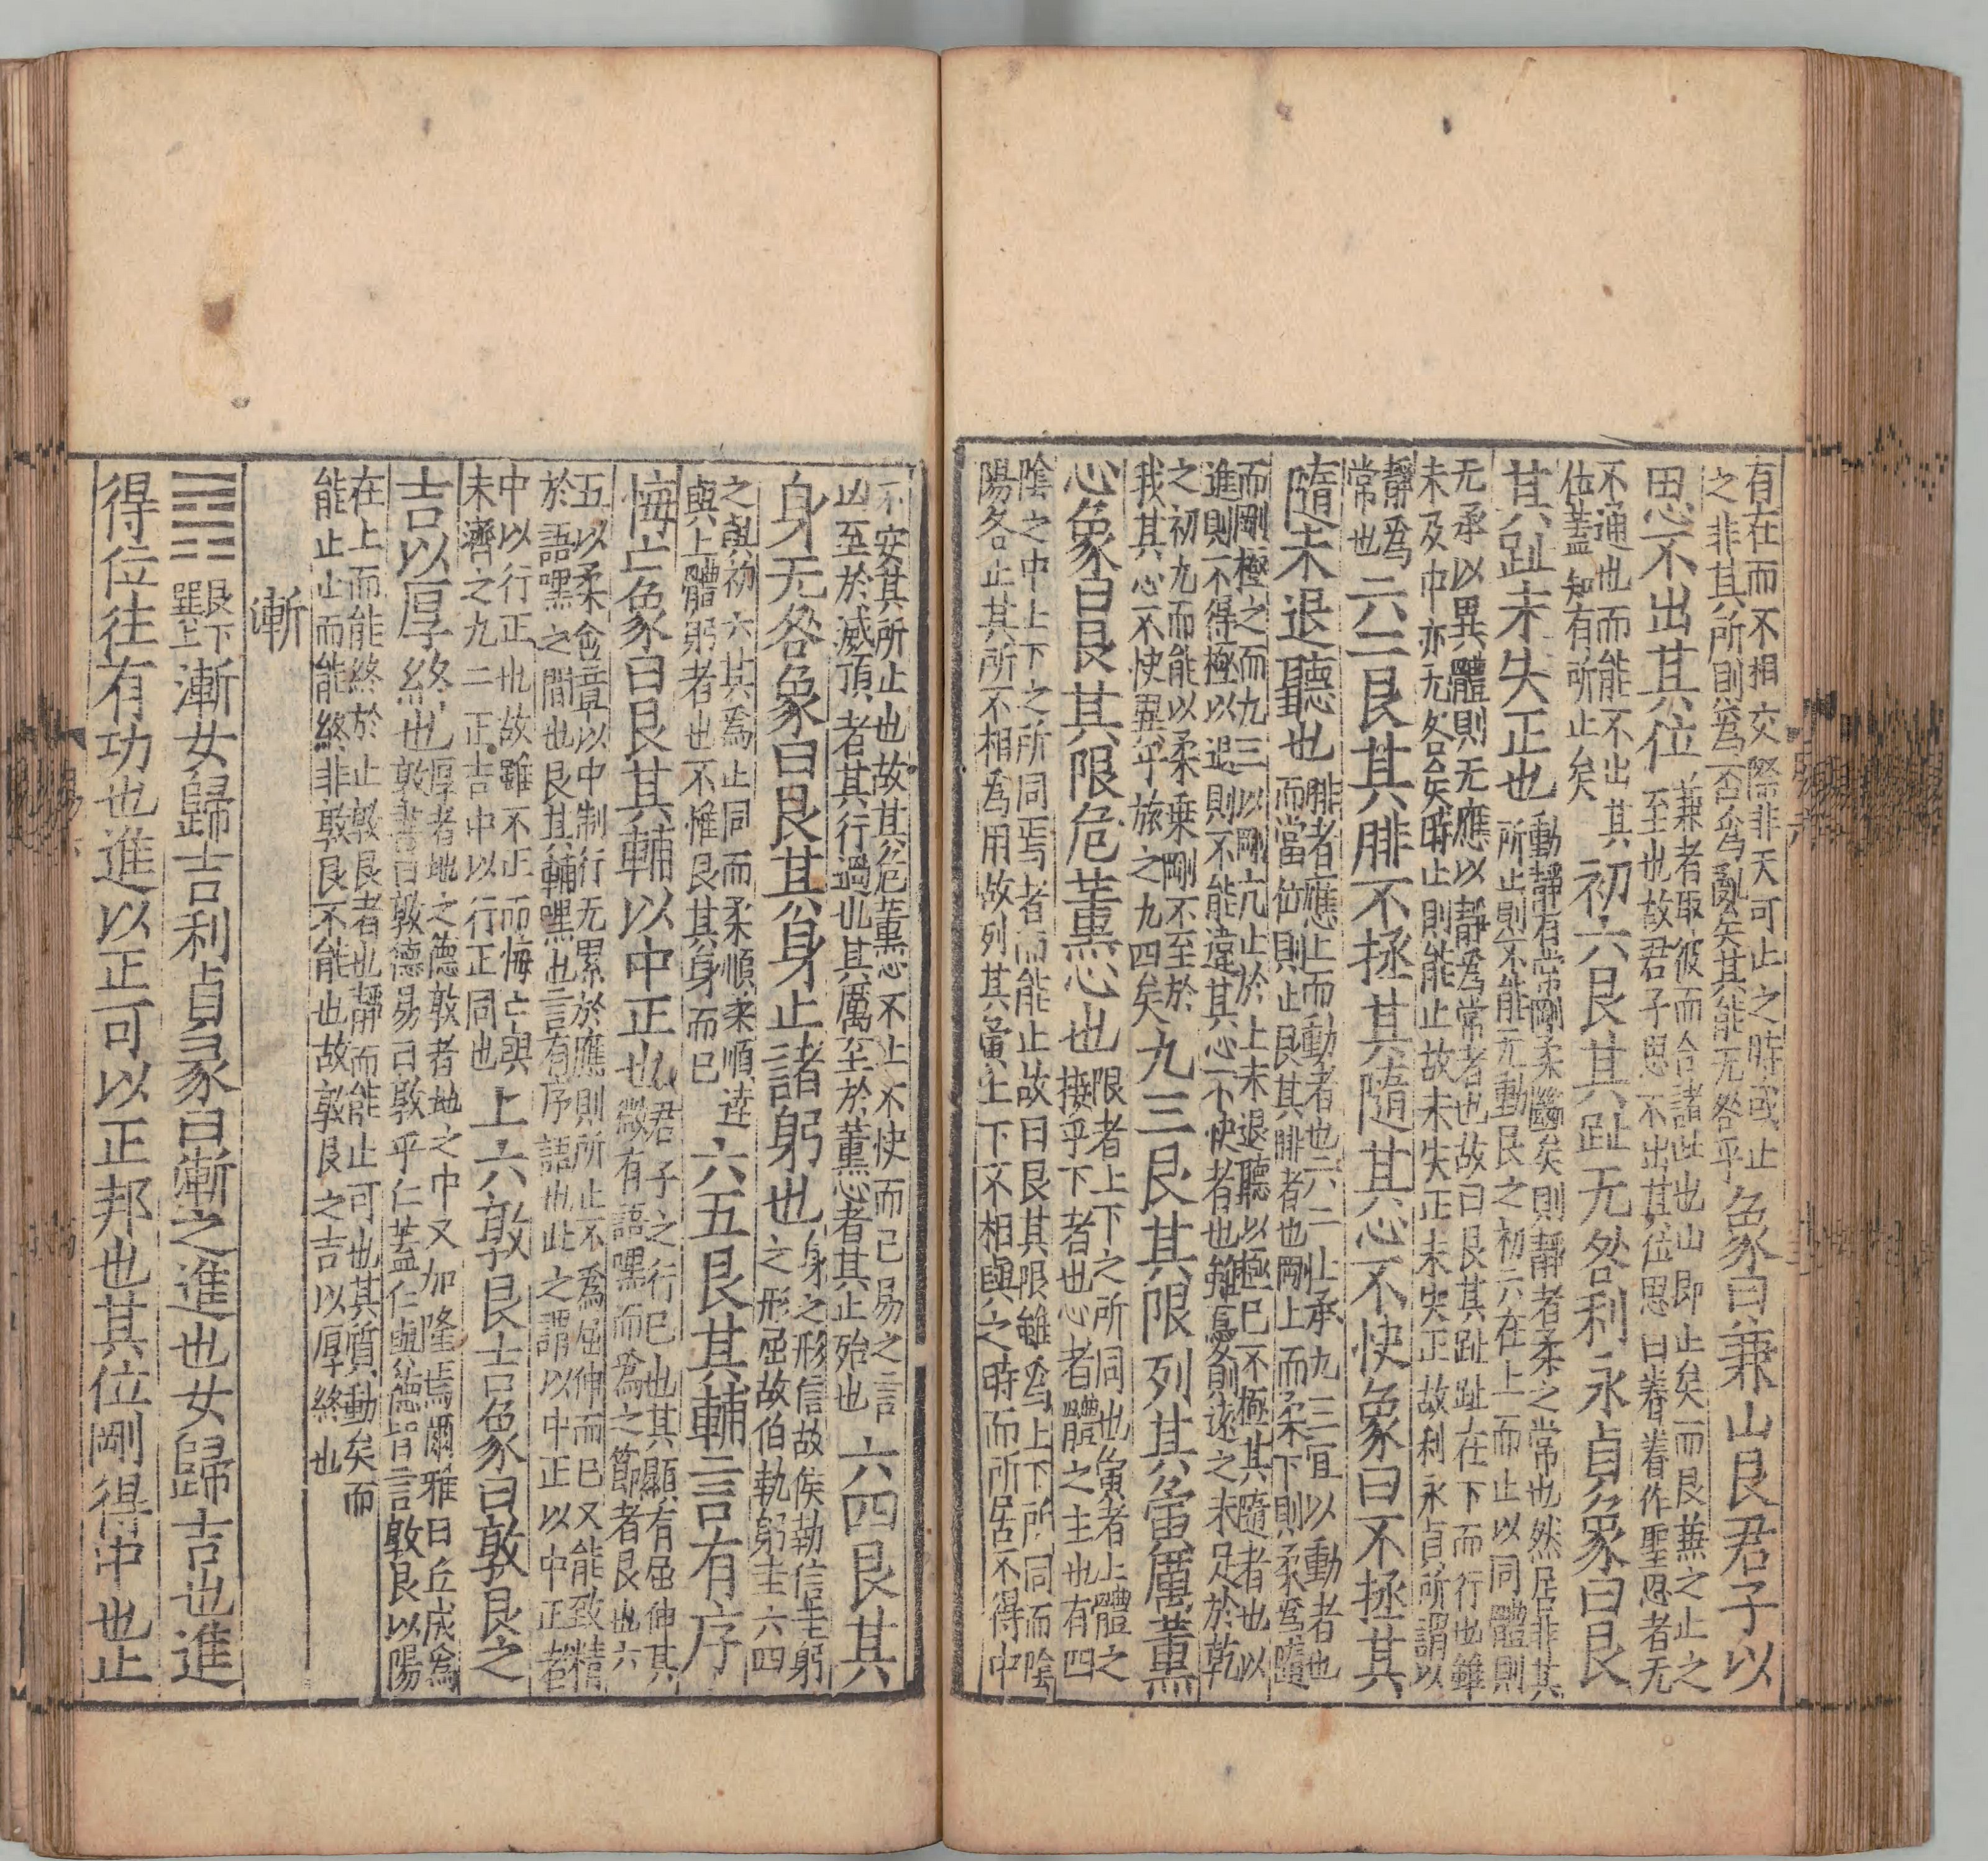 有在而不相交際非天可止之時或止
之非其所則為否為亂矣其能无咎乎
象曰兼山艮君子以
思不出其位
兼者取彼而合諸此也山即止矣而艮兼之止之
至也故君子思不出其位思曰睿睿作聖思者无
不通也而能不出其
位蓋知有所止矣
初六艮其趾无咎利永貞象曰艮
其趾未失正也
動靜有常剛柔斷矣則靜者柔之常也然居非其
所止則不能无動艮之初六在上而止以同體則
无承以異體則无應以靜為常者也故曰艮其趾趾在下而行也雖
未及中亦无咎矣時止則能止故未失正未失正故利永貞所謂以
靜為
常也
六二艮其腓不拯其隨其心不快象曰不拯其
隨未退聽也
腓者應止而動者也六二上承九三宜以動者也
而當位則止艮其腓者也剛上而柔下則柔為隨
而剛極之而九三以剛亢止於上未退聽以極已不極其隨者也以
進則不得極以退則不能違其心不快者也雖憂則違之未足於乾
之初九而能以柔乘剛不至於
我其心不快異乎旅之九四矣
九三艮其限列其夤厲薰
心象曰艮其限危薰心也
限者上下之所同也夤者上體之
接乎下者也心者體之主也有四
陰之中上下之所同焉者而能止故曰艮其限雖為上下所同而陰
陽各止其所不相為用故列其夤上下不相與之時而所居不得中
不安其所止也故其危薰心不止不快而已易之言
凶至於滅頂者其行過也其厲至於薰心者其止殆也
六四艮其
身无咎象曰艮其身止諸躬也
身之形信故侯執信圭躬
之形屈故伯執躬圭六四
之與初六其為止同而柔順來順逹
與上體躬者也不惟艮其身而已
六五艮其輔言有序
悔亡象曰艮其輔以中正也
君子之行已也其顯有屈伸其
微有語嘿而為之節者艮也六
五以柔含章以中制行无累於應則所止不為屈伸而已又能致精
於語嘿之間也艮其輔嘿也言有序語也此之謂以中正以中正者
中以行正也故雖不正而悔亡與
未濟之九二正吉中以行正同也
上六敦艮吉象曰敦艮之
吉以厚終也
厚者地之德敦者地之中又加隆焉爾雅曰丘成為
敦書曰敦德易曰敦乎仁蓋仁與德皆言敦艮以陽
在上而能終於止敦艮者也靜而能止可也其質動矣而
能止止而能終非敦艮不能也故敦艮之吉以厚終也
漸
艮下
巽上
漸女歸吉利貞彖曰漸之進也女歸吉也進
得位往有功也進以正可以正邦也其位剛得中也止